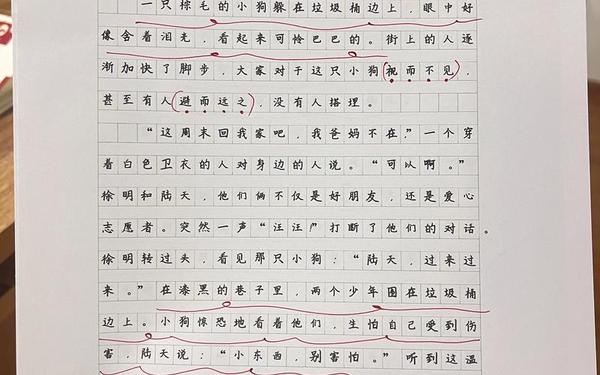 一只棕毛的小狗躲在垃圾桶边上，眼中好
像含着泪光，看起来可怜巴巴的。街上的人逐
渐加快了脚步，大家对于这只小狗(视而不见)，
甚至有人(避而远之)，没有人搭理。
“这周末回我家吧，我爸妈不在”一个穿
着白色卫衣的人对身边的人说。“可以啊。”
徐明和陆天，他们俩不仅是好朋友，还是爱心
志愿者。突然一声“汪汪！”打断了他们的对话。
徐明转过头，看见那只小狗：“陆天，过来过
来。”在漆黑的巷子里，两个少年围在垃圾桶
边上。小狗惊恐地看着他们，生怕自己受到伤
害，陆天说：“小东西，别害怕。”听到这温